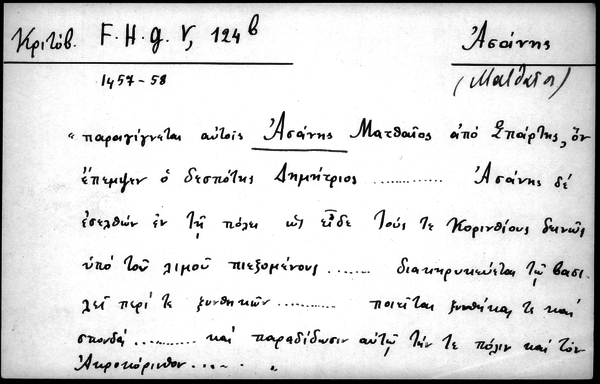 Κριτόβ. F.H.g. V, 124b Ἀσάνης
1457-58 (Ματθαῖος)
" παραγίγνεται αὐτοῖς Ἀσάνης Ματθαῖος ἀπό Σπάρτης, ὅν
ἔπεμψεν ὁ δεσπότης Δημήτριος ............ Ἀσάνης δέ
ἐσελθών ἐν τῇ πόλει ὡς εἶδε τούς τε Κορινθίους δεινῶς
ὑπό τοῦ λιμοῦ πιεζομένους ....... διακηρυκεύεται τῷ βασι-
λεῖ περί τε ξυνθηκῶν ........... ποιεῖται ξυνθήκας τε καί
σπονδάς .......... καί παραδίδωσιν αὐτῷ τήν τε πόλιν καί τόν
Ἀκροκόρινθον ...... "